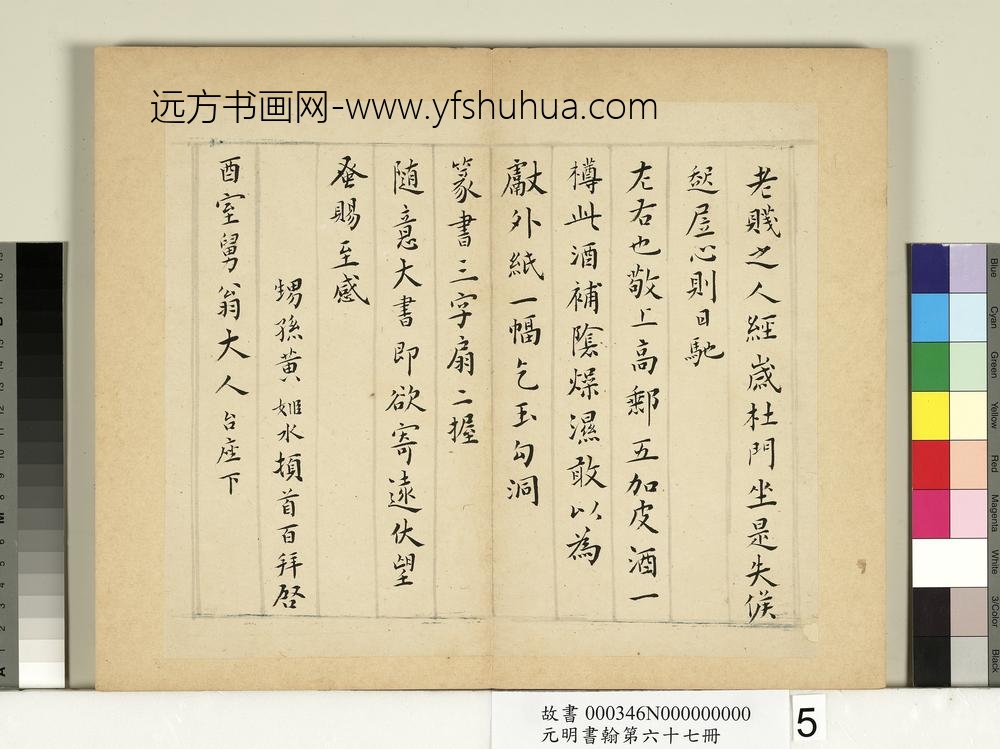 远方书画网-www.yfshuhua.com
老賤之人經歲杜門坐是失候
起居心則日馳
左右也敬上高郵五加皮酒一
樽此酒補陰燥濕敢以為
獻外紙一幅乞玉勾洞
篆書三字扇二握
随意大書即欲寄遠伏望
蚤賜至感
甥孫黃姬水頓首百拜啓
酉室舅翁大人台座下
故書 000346N000000000
元明書翰第六十七冊
5
Blue
Cyan
Green
Yellow
Red
Magenta
White
3/Color
Black